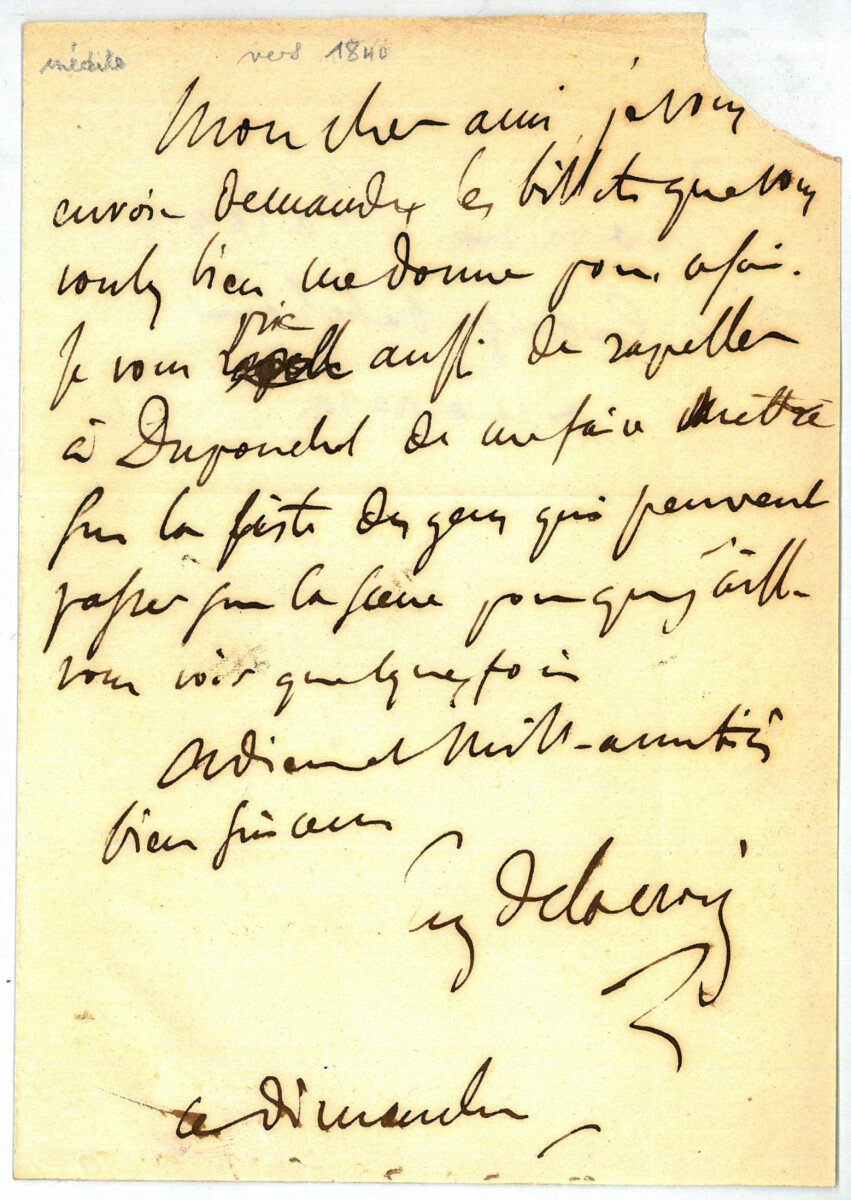 inédite vers 1840
Mon cher ami, je vous
envoie demander les billets que vous
voulez bien me donner pour ce soir.
Je vous prie aussi de rapeller
à Duponchel de me faire mettre
sur la liste des gens qui peuvent
passer sur la scène pour que j'aille
vous voir quelquefois
Adieu et mille amitiés
bien sincères
Eug Delacroix
ce dimanche